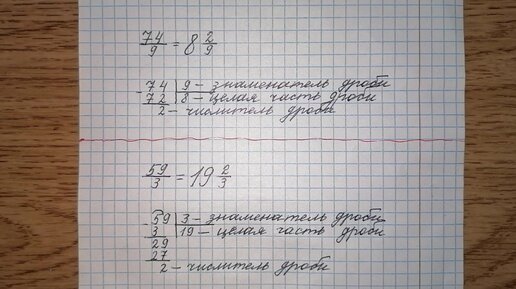 74/9 = 8 2/9
-74 | 9 - знаменатель дроби
72 | 8 - целая часть дроби
2 - числитель дроби
59/3 = 19 2/3
-59 | 3 - знаменатель дроби
3 | 19 - целая часть дроби
29
27
2 - числитель дроби